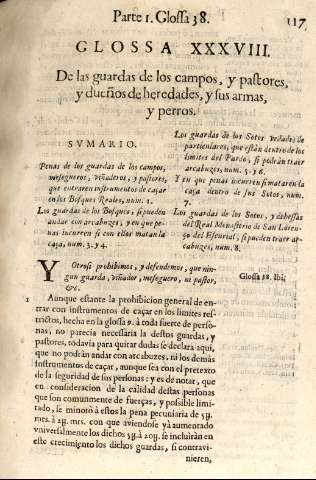 Parte 1. Glossa 38. 117
GLOSSA XXXVIII.
De las guardas de los campos, y pastores,
y dueños de heredades, y sus armas,
y perros.
SVMARIO.
Penas de los guardas de los campos,
mesegueros, viñaderos, y pastores,
que entraren instrumentos de caçar
en los Bosques Reales, num. 1.
Los guardas de los Bosques, si pueden
andar con arcabuzes, y en que pe-
nas incurren si con ellos matan la
caça, num. 3. y 4.
Los guardas de los Sotos vedados de
particulares, que están dentro de los
limites del Pardo, si podrán traer
arcabuzes, num. 5. y 6.
Y en que penas incurren si mataren la
caça dentro de sus Sotos, num.
7.
Los guardas de los Sotos, y dehessas
del Real Monasterio de San Loren-
ço del Escurial, si pueden traer ar-
cabuzes, num. 8.
Y Otrosi prohibimos, y defendemos, que nin-
gun guarda, viñador, meseguero, ni pastor,
&c.
Glossa 38. Ibi;
1 Aunque estante la prohibicion general de en-
trar con instrumentos de caçar en los limites res-
trictos, hecha en la glossa 9. à toda suerte de perso-
nas, no parecia necessaria la destos guardas, y
pastores, todavia para quitar dudas se declara aqui,
que no podrán andar con arcabuzes, ni los demàs
instrumentos de caçar, aunque sea con el pretexto
de la seguridad de sus personas: y es de notar, que
en consideracion de la calidad destas personas
que son comunmente de fuerças, y possible limi-
tado, se minorò à estos la pena pecuniaria de 5y.
mrs. à 2y. mrs. con que aviendose yà aumentado
vniversalmente los dichos 5y. à 20y. se incluiràn en
este crecimiento los dichos guardas, si contravi-
nieren,